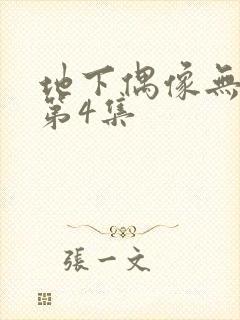 地下偶像無
第4集
張一文